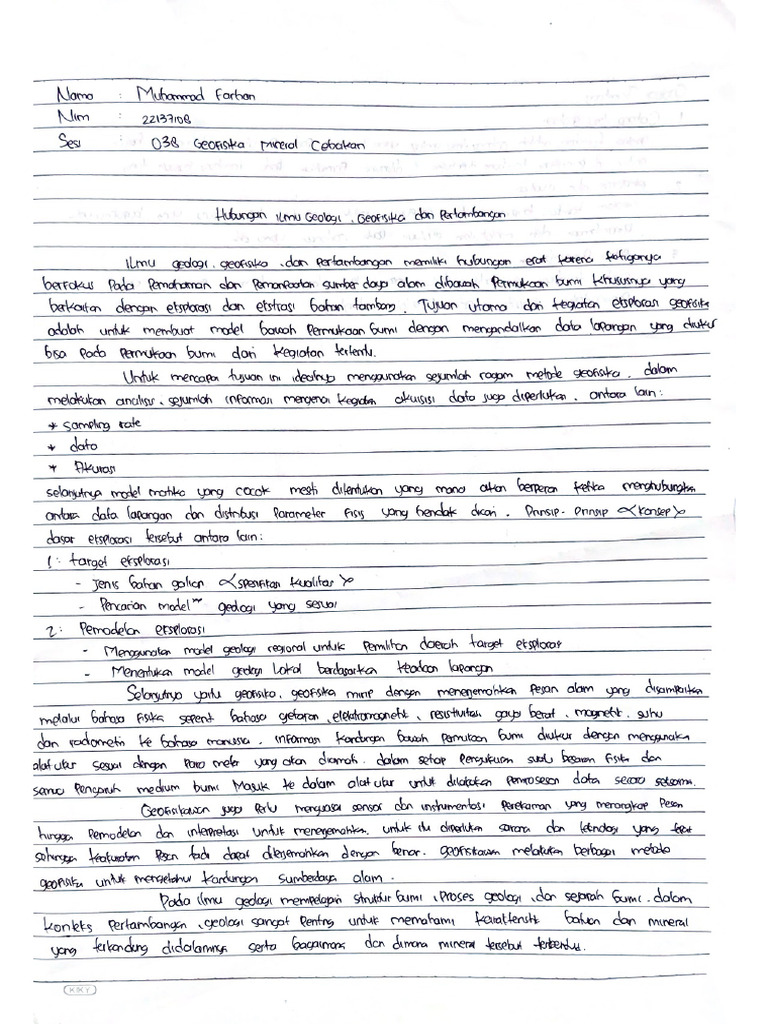 Nama : Muhammad Farhan
Nim : 22137108
Sesi : 03B Geofisika Mineral Cebakan
Hubungan Ilmu Geologi, Geofisika dan Pertambangan
Ilmu geologi, geofisika, dan Pertambangan memiliki hubungan erat karena ketiganya
berfokus Pada Pemahaman dan Pemanfaatan sumber daya alam dibawah Permukaan bumi khususnya yang
berkaitan dengan eksplorasi dan ekstrasi bahan tambang. Tujuan utama dari kegiatan eksplorasi geofisika
adalah untuk membuat model bawah Permukaan bumi dengan mengandalkan data lapangan yang diukur
bisa pada Permukaan bumi dari kegiatan tertentu.
Untuk mencapai tujuan ini idealnya menggunakan sejumlah ragam metode geofisika. dalam
melakukan analisis, sejumlah informasi mengenai kegiatan akuisisi data juga diperlukan, antara lain:
* sampling rate
* data
* Akurasi
selanjutnya model yang cocok mesti ditentukan yang mana akan berperan ketika menghubungkan
antara data lapangan dan distribusi Parameter fisis yang hendak dicari. Prinsip-Prinsip <Konsep>
dasar eksplorasi tersebut antara lain:
1. target eksplorasi
- Jenis bahan galian <spesifikan kualitas>
- Pencarian model" geologi yang sesuai
2. Pemodelan eksplorasi
- Menggunakan model geologi regional untuk Pemilihan daerah target eksplorasi
- Menentukan model geologi Lokal berdasarkan keadaan lapangan
Selanjutnya yaitu geofisika, geofisika mirip dengan menerjemahkan Pesan alam yang disampaikan
melalui bahasa fisika seperti bahasa getaran, elektromagnetik, resistivitas, gaya berat, magnetik, suhu
dan radometri ke bahasa manusia. informasi kandungan bawah permukaan bumi diukur dengan menggunaka
alat ukur sesuai dengan Para meter yang akan diamati. dalam setiap Pengukuran suatu besaran fisika dan
semua Pengaruh medium bumi Masuk ke dalam alat ukur untuk dilakukan pemrosesan data secara seksama.
Geofisikawan juga Perlu menguasai sensor dan instrumentasi Perekaman yang menangkap Pesan
hingga Pemodelan dan interpretasi untuk menerjemahkan, untuk itu diperlukan sarana dan teknologi yang tepat
sehingga keakuratan Pesan tadi dapat diterjemahkan dengan benar. geofisikawan melakukan berbagai metode
geofisika untuk mengetahui kandungan sumberdaya alam.
Pada ilmu geologi mempelajari struktur bumi, Proses geologi, dan sejarah bumi. dalam
konteks Pertambangan, geologi sangat Penting untuk memahami karakteristik batuan dan mineral
yang terkandung didalamnya serta bagaimana dan dimana mineral tersebut terbentuk.
KIKY